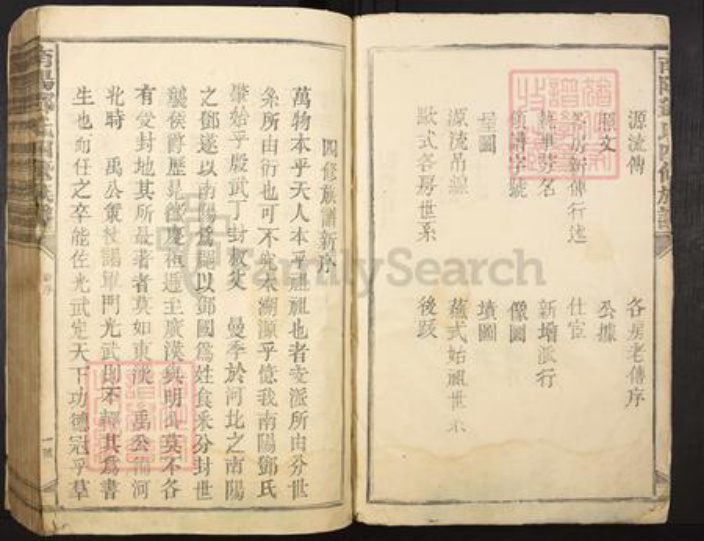 南陽鄧氏四修族譜
源流傳
各房老傳序
公據
各房新傳行述
仕宦
新增派行
像圖
墳圖
源流吊線
蘇式始祖世系
歐式各房世系
後跋
四修族譜新序
萬物本乎天人本乎祖祖也者支派所由分世
系所由衍也可不究本溯源乎憶我南陽鄧氏
肇始乎殷武丁封叔父 曼季於河北之南陽
之鄧遂以南陽為郡以鄧國為姓食釆分封世
襲侯爵歷見徵慶袓遷至廣漢與明公莫不各
有受封地其所最著者莫如東漢 禹公佃河
北時 禹公策杖謁軍門光武與不釋其為書
生也而任之卒能佐光武定天下功德冠乎羣
新序
一號
FamilySearch